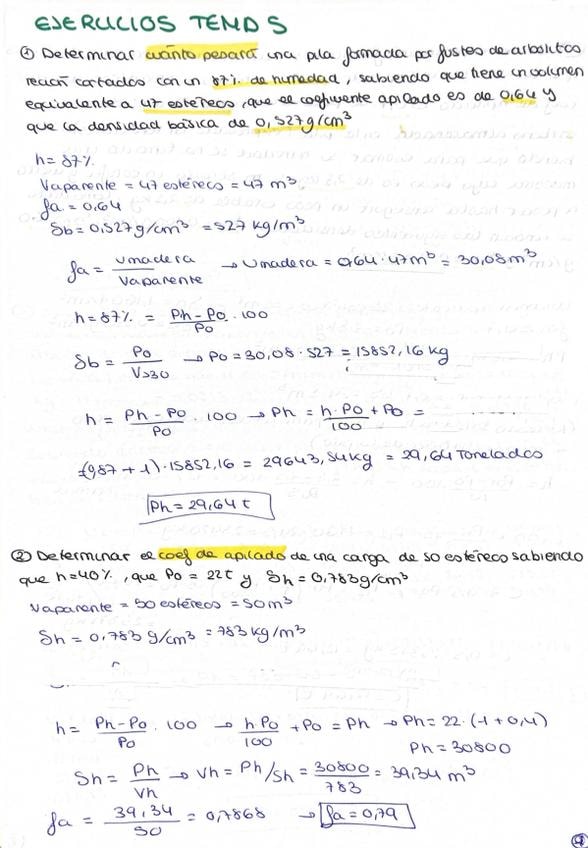 EJERCICIOS TEMA 5
① Determinar cuánto pesará una pila formada por fustes de arbolitos
recién cortados con un 87% de humedad, sabiendo que tiene un volumen
equivalente a 47 estéreos, que el coeficiente apilado es de 0,64 y
que la densidad básica de 0,527g/cm³
h = 87%
Vaparente = 47 estéreos = 47 m³
fa = 0,64
δb = 0,527 g/cm³ = 527 kg/m³
fa = Vmadera / Vaparente → Vmadera = 0,64 · 47m³ = 30,08m³
h = 87% = Ph - Po / Po · 100
δb = Po / V>30 → Po = 30,08 · 527 = 15852,16 kg
h = Ph - Po / Po · 100 → Ph = h · Po / 100 + Po =
(0,87 + 1) · 15852,16 = 29643,54kg = 29,64 Toneladas
Ph = 29,64 t
② Determinar el coef de apilado de una carga de 50 estéreo sabiendo
que h=40%, que Po = 22t y δh = 0,783g/cm³
Vaparente = 50 estéreos = 50m³
δh = 0,783 g/cm³ = 783 kg/m³
h = Ph-Po / Po · 100 → h·Po / 100 + Po = Ph → Ph = 22 · (1 + 0,4)
Ph = 30800
δh = Ph / Vh → Vh = Ph/δh = 30800 / 783 = 39,34 m³
fa = 39,34 / 50 = 0,7868 → fa = 0,79